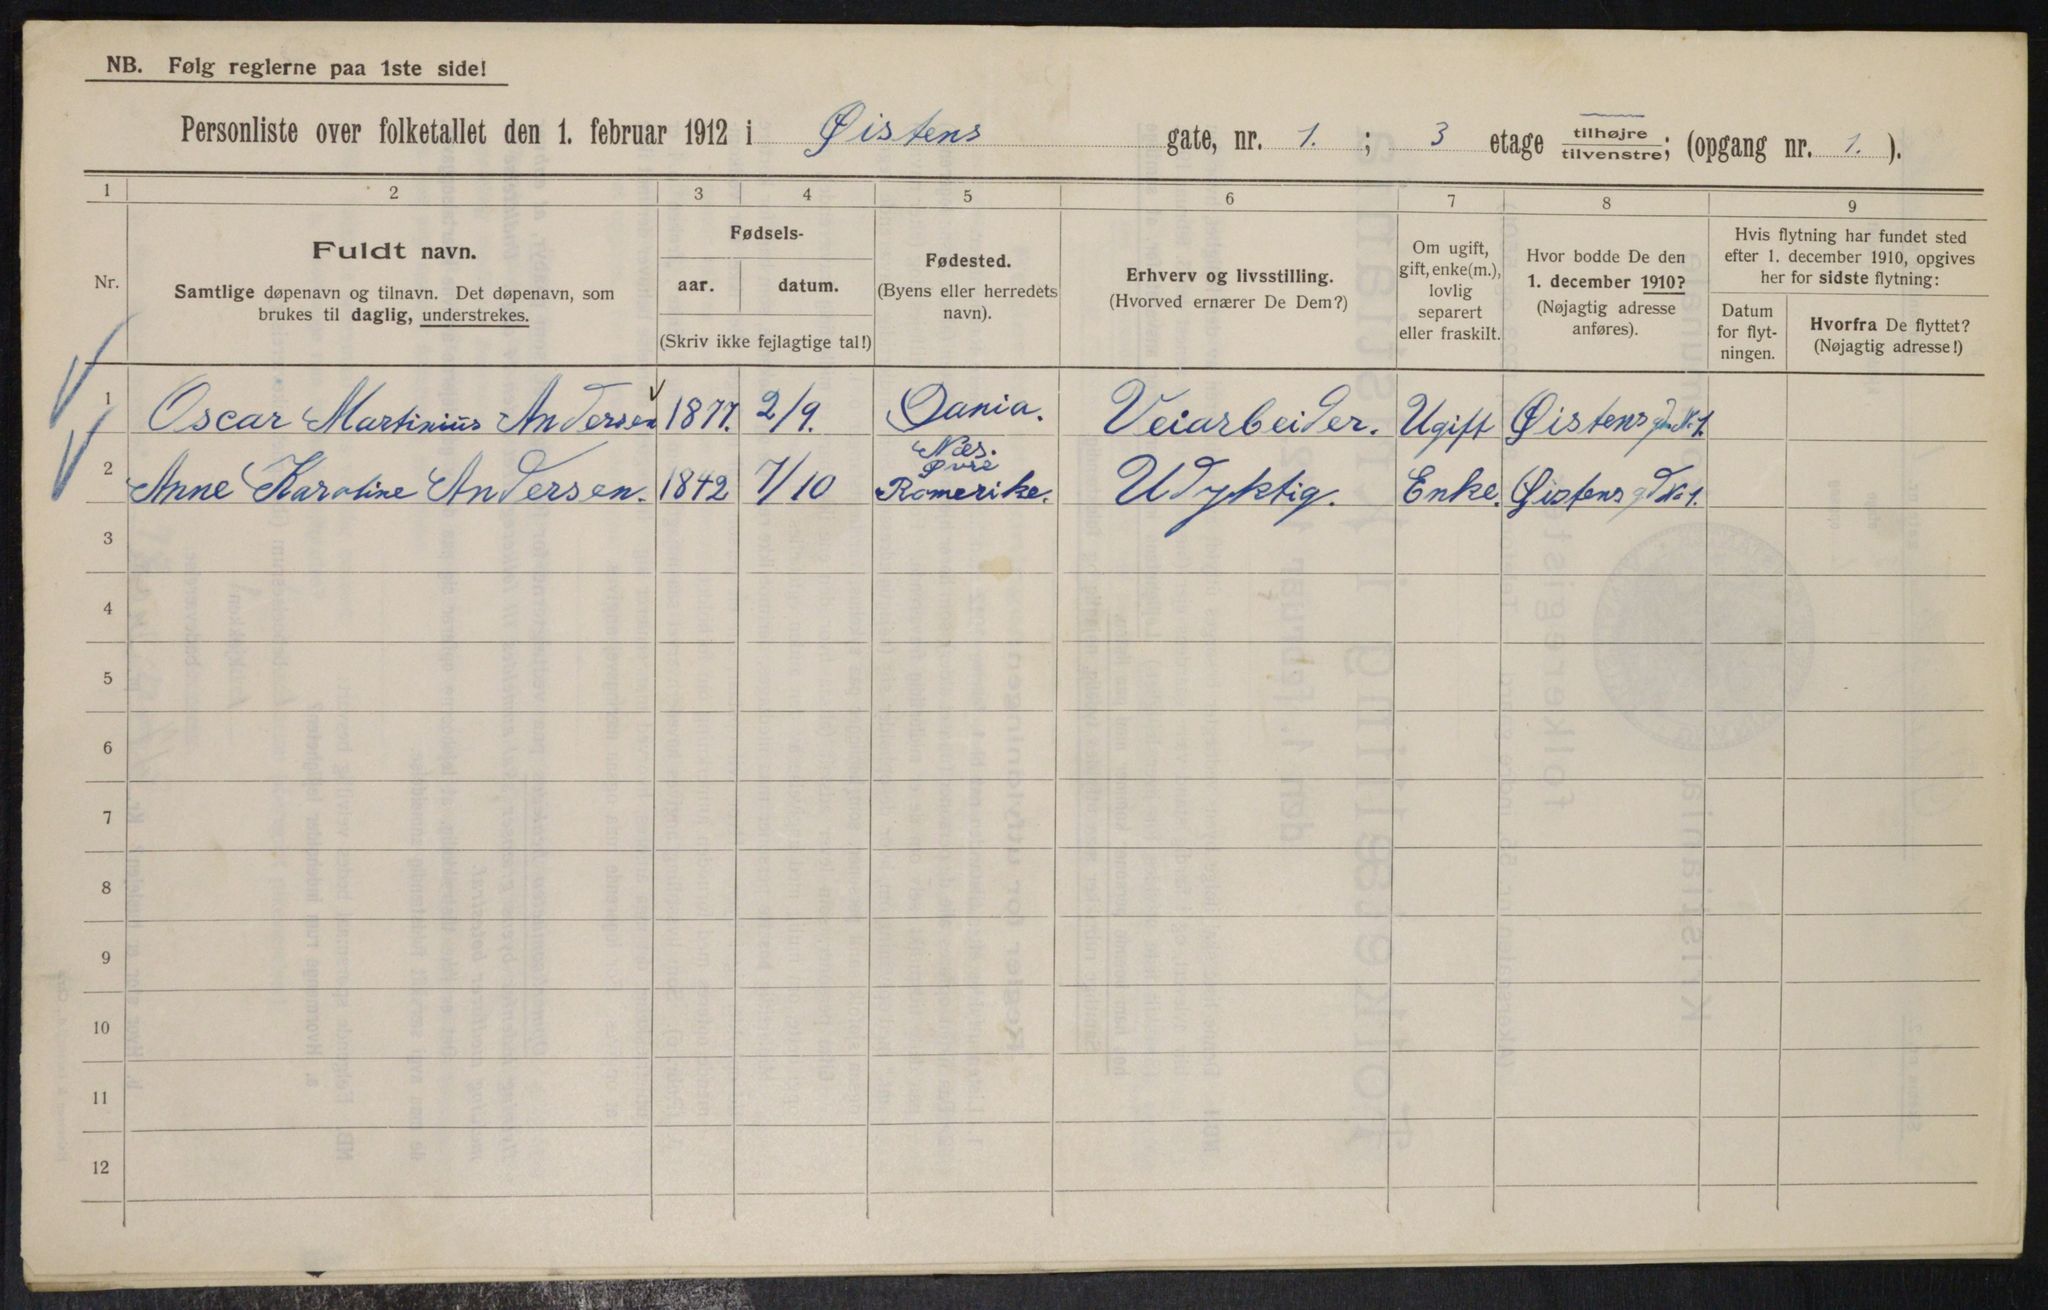 NB. Følg reglerne paa 1ste side!
Personliste over folketallet den 1. februar 1912 i Øistens gate, nr. 1. ; 3 etage tilhøjre/tilvenstre; (opgang nr. 1. ).
1 2 3 4 5 6 7 8 9
Nr.
Fuldt navn.
Samtlige døpenavn og tilnavn. Det døpenavn, som
brukes til daglig, understrekes.
Fødsels-
aar. datum.
(Skriv ikke fejlagtige tal!)
Fødested.
(Byens eller herredets
navn).
Erhverv og livsstilling.
(Hvorved ernærer De Dem?)
Om ugift,
gift, enke(m.),
lovlig
separert
eller fraskilt.
Hvor bodde De den
1. december 1910?
(Nøjagtig adresse
anføres).
Hvis flytning har fundet sted
efter 1. december 1910, opgives
her for sidste flytning:
Datum
for flyt-
ningen.
Hvorfra De flyttet?
(Nøjagtig adresse!)
1 Oscar Martinius Andersen 1877. 2/9. Dania. Veiarbeider. Ugift Øistens gdn No 1.
2 Anne Karoline Andersen. 1842 7/10 Næs. Øvre Romerike. Udyktig. Enke. Øistens gd No 1.
3
4
5
6
7
8
9
10
11
12